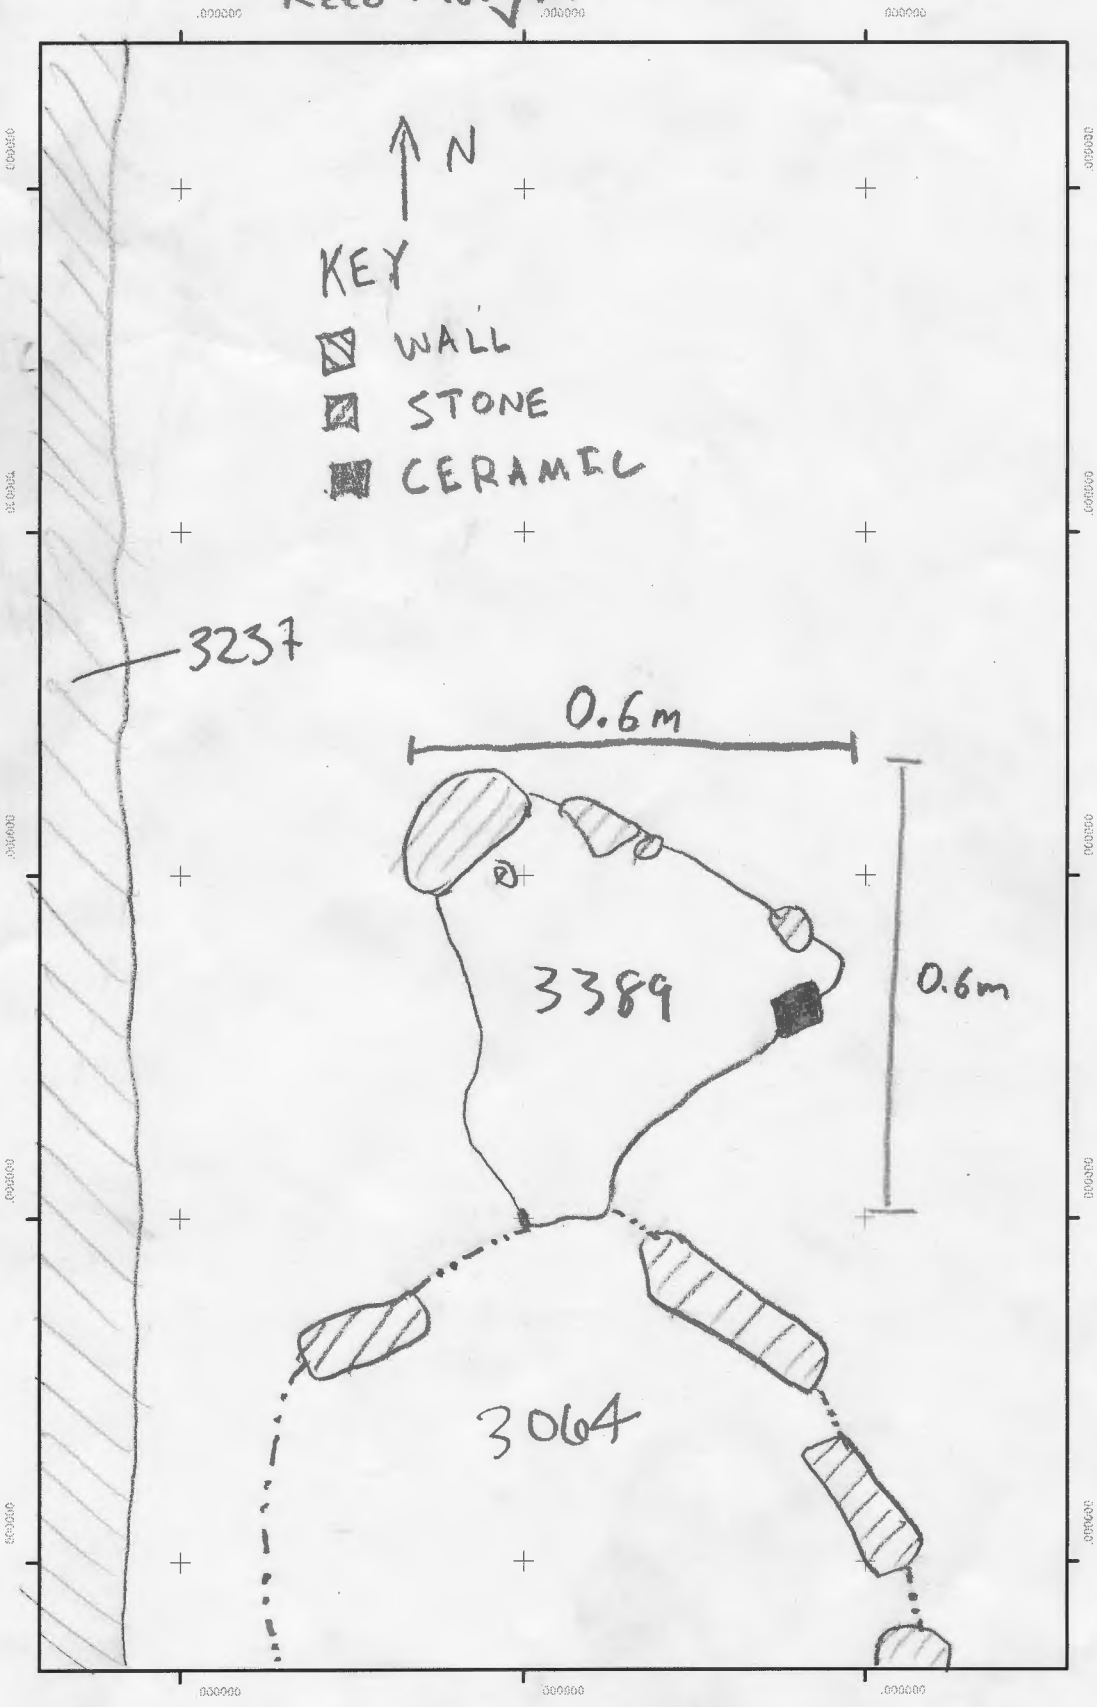 .000000
.000000
.000000
N
KEY
WALL
STONE
CERAMIC
3237
0.6m
3389
0.6m
3064
.000000
.000000
.000000